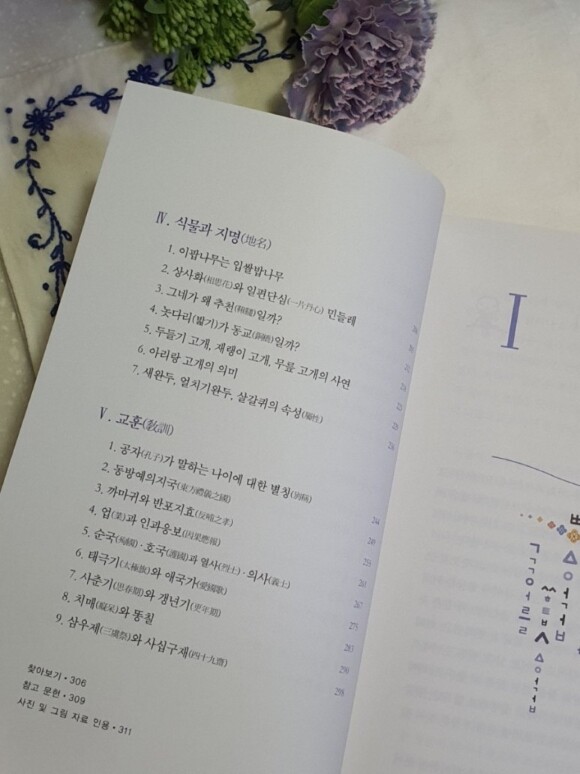 Ⅳ. 식물과 지명(地名)
1. 이팝나무는 입쌀밥나무
2. 상사화(相思花)와 일편단심(一片丹心) 민들레
3. 그네가 왜 추천(鞦韆)일까?
4. 놋다리(밟기)가 동교(銅橋)일까?
5. 두들기 고개, 재랭이 고개, 무릎 고개의 사연
6. 아리랑 고개의 의미
7. 새완두, 얼치기완두, 살갈퀴의 속성(屬性)
Ⅴ. 교훈(敎訓)
1. 공자(孔子)가 말하는 나이에 대한 별칭(別稱)
2. 동방예의지국(東方禮儀之國)
3. 까마귀와 반포지효(反哺之孝)
4. 업(業)과 인과응보(因果應報)
5. 순국(殉國)·호국(護國)과 열사(烈士)·의사(義士)
6. 태극기(太極旗)와 애국가(愛國歌)
7. 사춘기(思春期)와 갱년기(更年期)
8. 치매(癡呆)와 똥칠
9. 삼우제(三虞祭)와 사십구재(四十九齋)
찾아보기 • 306
참고 문헌 • 309
사진 및 그림 자료 인용 • 311
Ⅰ